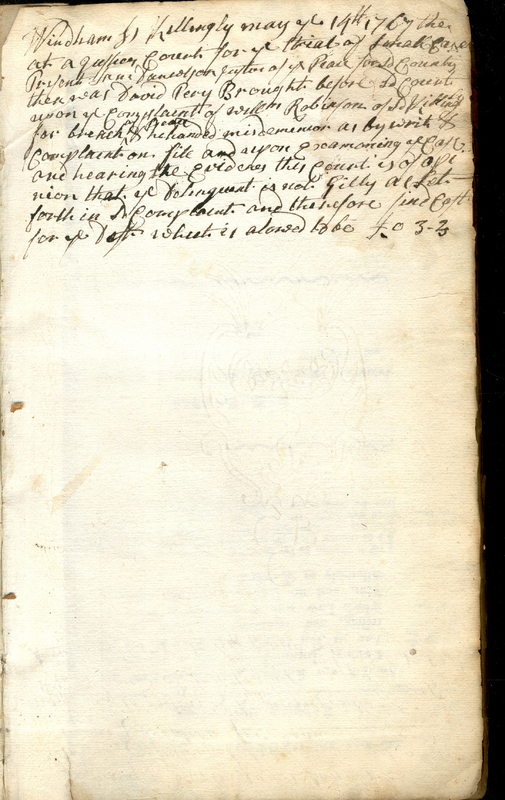 Windham Ss Killingly may ye 14th 1767 then
at a Justices Court for ye trial of Small Cases
Present Jared Justes of ye Peace for sd County
then was David Pery Brought before sd Court
upon ye Complaint of Willm Robinson of sd Killing
for breach of Peace & misdemenior as by writ &
Complaint on file and upon ye Case
and hearing the Evidences this Court is of opi
nion that ye Delinquent is not Gilty as Set
forth in sd Complaint and therefore find Cost
for ye Deft which is alowed to be £0 3-3